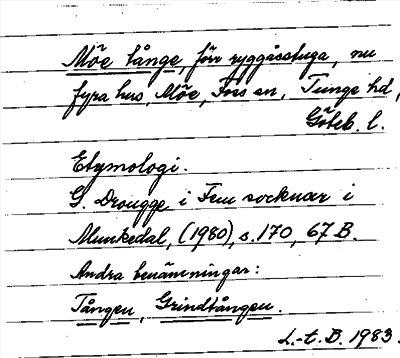 Möe långe, förr ryggåsstuga, nu
fyra hus, Möe, Foss sn, Tunge hd,
Göteb. l.
Etymologi.
G. Drougge i Fem socknar i
Munkedal, (1980), s. 170, 67 B.
Andra benämningar:
Tången, Grindtången.
L.-t. B. 1983.